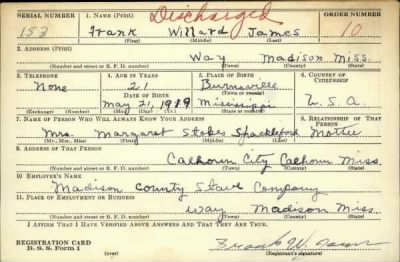 SERIAL NUMBER 1. NAME (Print) Discharged ORDER NUMBER
153 Frank Willard James 10
(First) (Middle) (Last)
2. ADDRESS (Print)
Way Madison Miss.
(Number and street or R. F. D. number) (Town) (County) (State)
3. TELEPHONE 4. AGE IN YEARS 5. PLACE OF BIRTH 6. COUNTRY OF CITIZENSHIP
None 21 Burnsville
DATE OF BIRTH (Town or county)
May 21, 1919 Mississippi U.S.A.
(Exchange) (Number) (Mo.) (Day) (Yr.) (State or country)
7. NAME OF PERSON WHO WILL ALWAYS KNOW YOUR ADDRESS 8. RELATIONSHIP OF THAT PERSON
Mrs. Margaret Stokes Shackleford Mother
(Mr., Mrs., Miss) (First) (Middle) (Last)
9. ADDRESS OF THAT PERSON
Calhoun City Calhoun Miss.
(Number and street or R. F. D. number) (Town) (County) (State)
10. EMPLOYER'S NAME
Madison County Stave Company
11. PLACE OF EMPLOYMENT OR BUSINESS
Way Madison Miss.
(Number and street or R. F. D. number) (Town) (County) (State)
I AFFIRM THAT I HAVE VERIFIED ABOVE ANSWERS AND THAT THEY ARE TRUE.
REGISTRATION CARD
D. S. S. Form 1 Frank W. James
(over) (Registrant's signature)